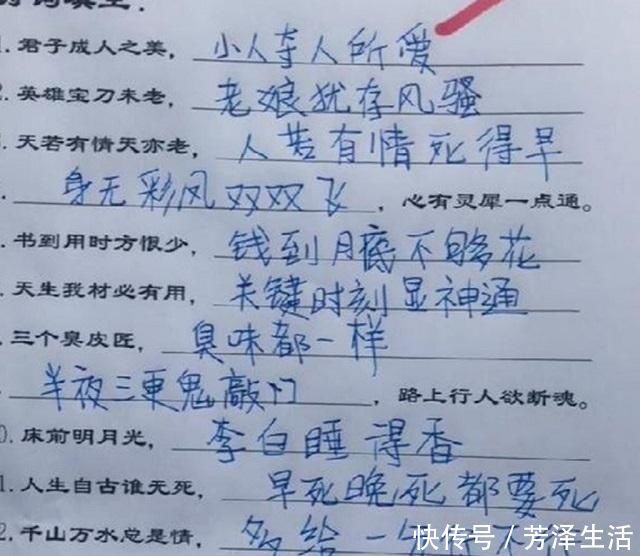 词填空：
1. 君子成人之美， 小人夺人所爱
2. 英雄宝刀未老， 老娘犹存风骚
天若有情天亦老， 人若有情死得早
身无彩风双双飞 ，心有灵犀一点通。
书到用时方恨少， 钱到月底不够花
天生我材必有用， 关键时刻显神通
三个臭皮匠， 臭味都一样
半夜三更鬼敲门 ，路上行人欲断魂。
0. 床前明月光， 李白睡得香
1. 人生自古谁无死， 早死晚死都要死
2. 千山万水总是情， 多给一
快传号／芳泽生活